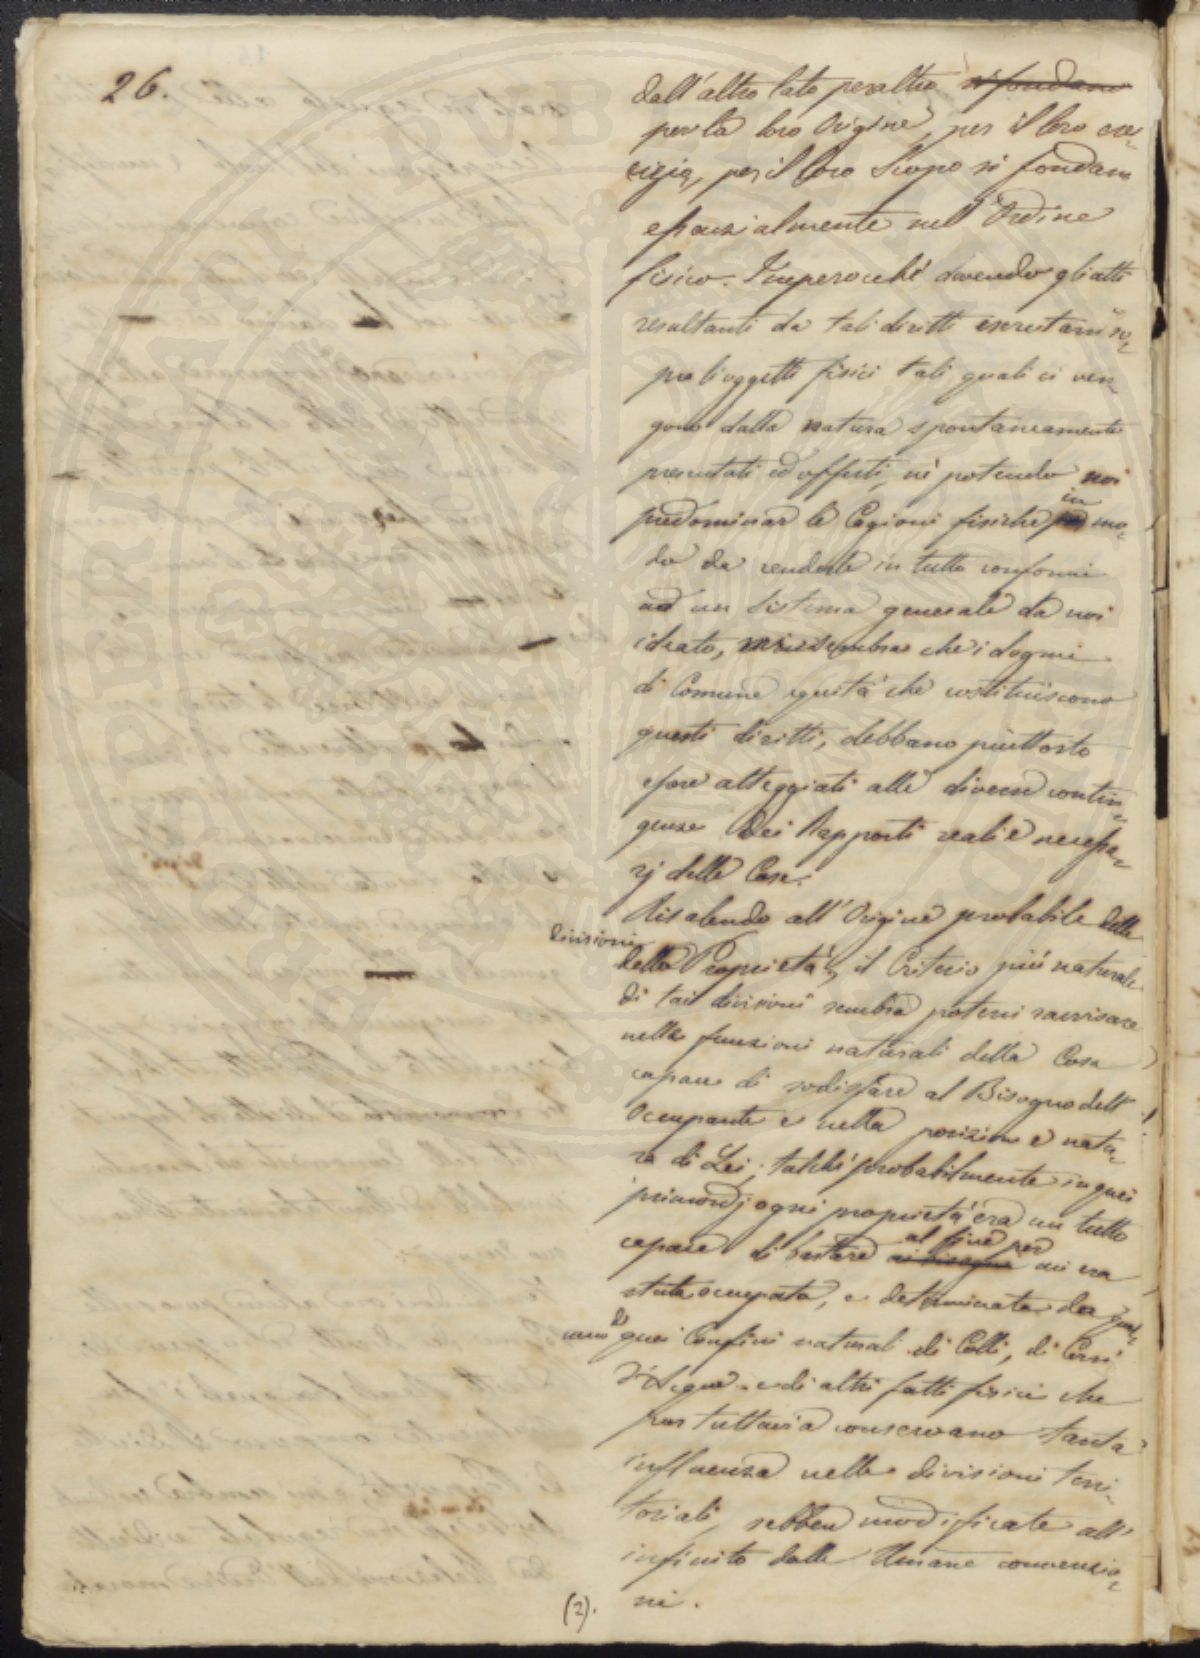 26.
dall'altro lato peraltro si fondano
per la loro Origine, per il loro ese-
cizio, per il loro Scopo si fondano
essenzialmente nell'Ordine
fisico. Imperocché dovendo gli atti
resultanti da tali diritti esercitarsi so-
pra li oggetti fisici tali quali ci ven-
gono dalla natura spontaneamente
presentati ed offerti, né potendo noi
predominar le Cagioni fisiche in mo-
do da renderle in tutto conformi
ad un Sistema generale da noi
ideato, sembra che i dogmi
di Comune equità che costituiscono
questi diritti, debbano piuttosto
essere atteggiati alle diverse contin-
genze dei Rapporti reali e necessa-
rj delle Cose.
Risalendo all'Origine probabile delle
divisioni
della Proprietà, il Criterio più naturale
di tai divisioni sembra potersi ravvisare
nelle funzioni naturali della Cosa
capace di sodisfare al Bisogno dell'
Occupante e nella posizione e natu-
ra di Lei; talché probabilmente in quei
primordj ogni proprietà era un tutto
capace di bastare ai bisogni al fine per cui era
stata occupata, e determinata da qual-
cuno di quei Confini naturali di Colli, di Corsi
d'Acqua, e di altri fatti fisici che
pur tuttavia conservano tanta
influenza nelle divisioni terri-
toriali, sebben modificate all'
infinito dalle Umane convenzio-
ni.
(2).